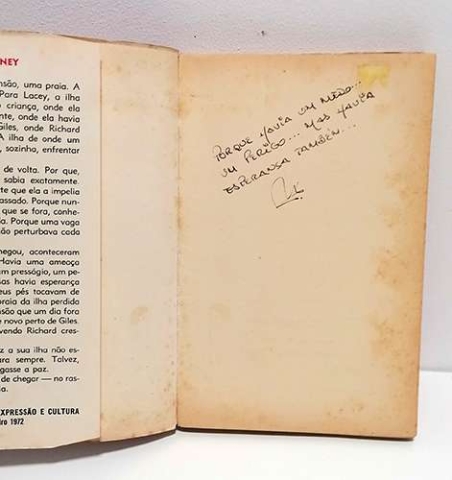 NEY
nsão, uma praia. A
Para Lacey, a ilha
criança, onde ela
nte, onde ela havia
Giles, onde Richard
A ilha de onde um
, sozinha, enfrentar
de volta. Por que,
sabia exatamente.
rte que ela a impelia
assado. Porque nun-
que se fora, conhe-
Porque uma vaga
ção perturbava cada
hegou, aconteceram
Havia uma ameaça
m presságio, um pe-
as havia esperança
eus pés tocavam de
praia da ilha perdida
nsão que um dia fora
e novo perto de Giles.
vendo Richard cres-
z a sua ilha não es-
ara sempre. Talvez,
gasse a paz.
de chegar — no ras-
a.
XPRESSÃO E CULTURA
iro 1972
PORQUE HAVIA UM MEDO...
UM PERIGO... MAS HAVIA
ESPERANSA TAMBÉM...